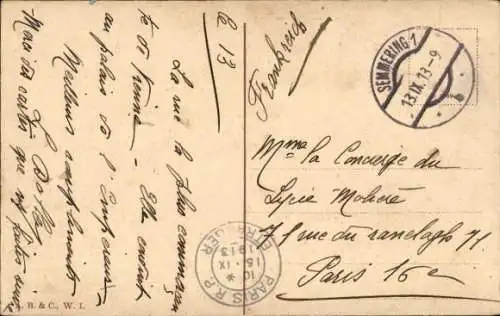 le 13
La rue la plus commerçante
de Vienne - Elle conduit
au palais de l'Empereur
Meilleurs compliments
L. Dolla
Merci des cartes que vous faites
Frankreich
SEMMERING 1
13.IX.13-9
b
Mme la Concierge du
Lycée Molière
71 rue du ranelagh 71
Paris 16e
PARIS R.P.
ETRANGER
10
15 - IX
1913
B. & C., W. I.